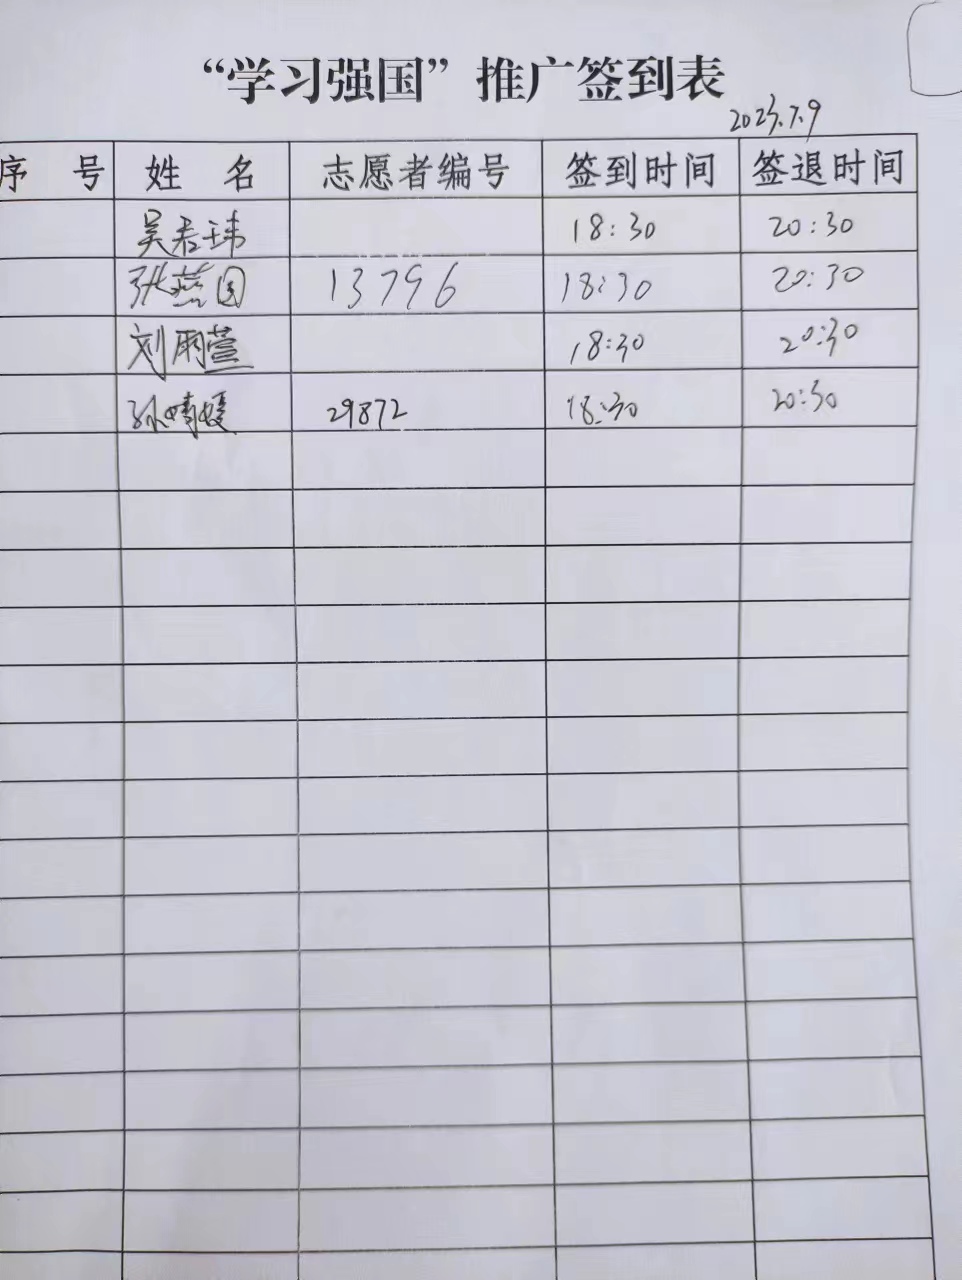 “学习强国”推广签到表
2023.7.9
序 号 姓 名 志愿者编号 签到时间 签退时间
吴君玮 18:30 20:30
张燕国 13796 18:30 20:30
刘雨萱 18:30 20:30
孙晴媛 29872 18:30 20:30